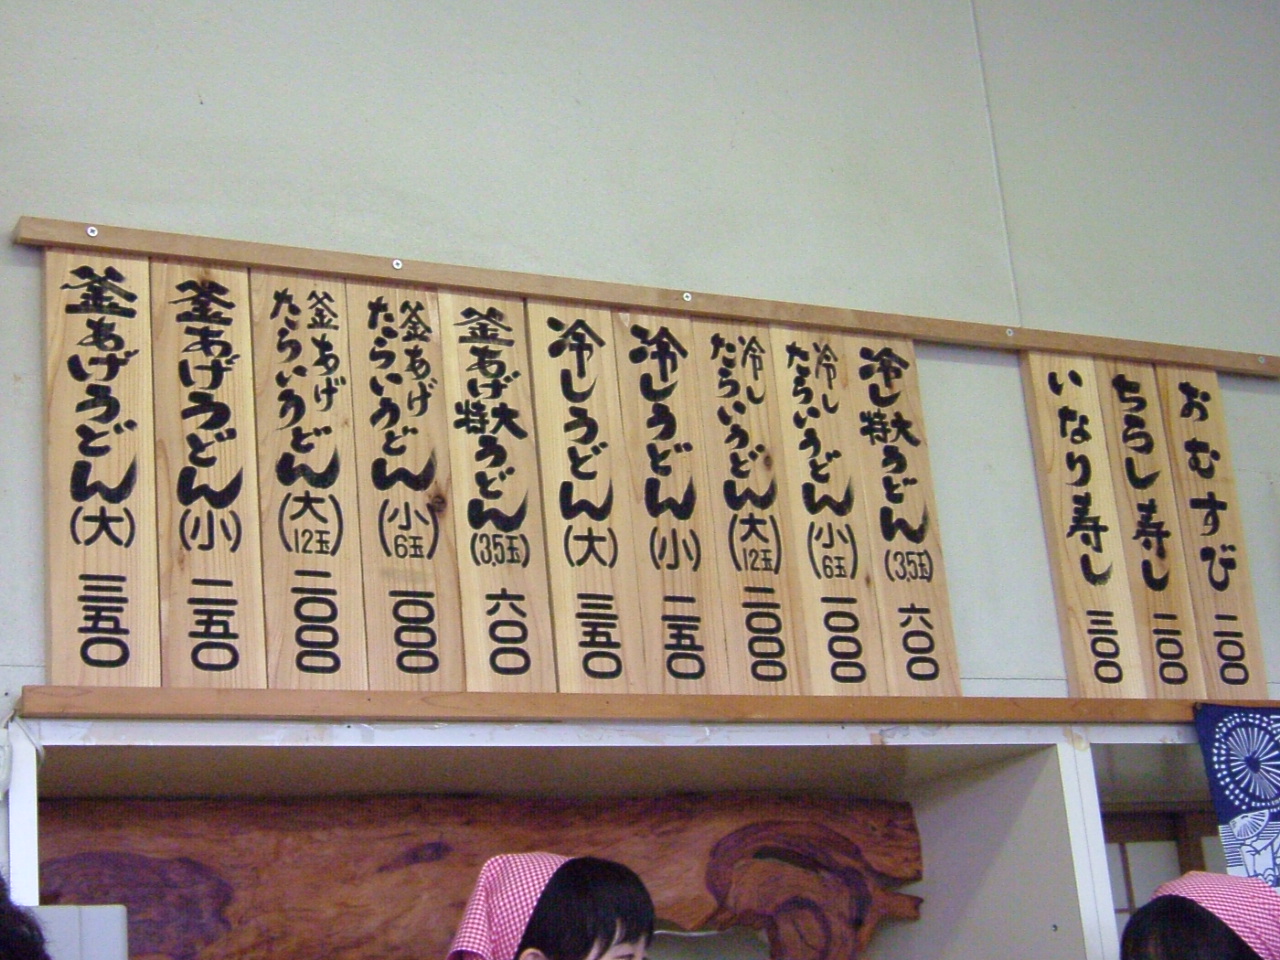 釜あげうどん(大) 三五〇
釜あげうどん(小) 二五〇
釜あげたらいうどん(大)12玉 二〇〇〇
釜あげたらいうどん(小)6玉 一〇〇〇
釜あげ特大うどん(3.5玉) 六〇〇
冷しうどん(大) 三五〇
冷しうどん(小) 二五〇
冷したらいうどん(大)12玉 二〇〇〇
冷したらいうどん(小)6玉 一〇〇〇
冷し特大うどん(3.5玉) 六〇〇
いなり寿し 三〇〇
ちらし寿し 二〇〇
おむすび 二〇〇